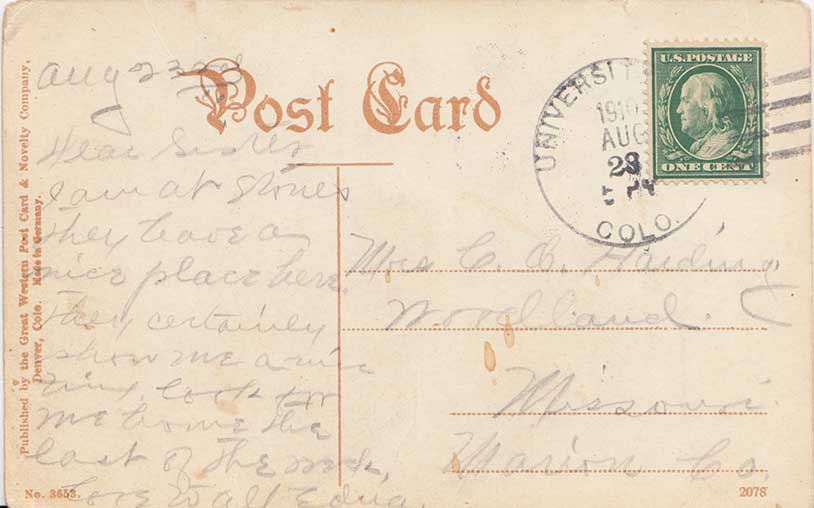 Published by the Great Western Post Card & Novelty Company,
Denver, Colo. Made in Germany.
Post Card
U.S. POSTAGE
ONE CENT
UNIVERSIT
1910
AUG
28
COLO.
Aug 23rd
Dear Sister
I am at Stones
they have a
nice place here.
They certainly
show me a nice
time, look for
me home the
last of the week,
Love to all Edna.
Mrs C. O. Harding,
Woodland.
Missouri.
Marion Co.
No. 3653.
2078